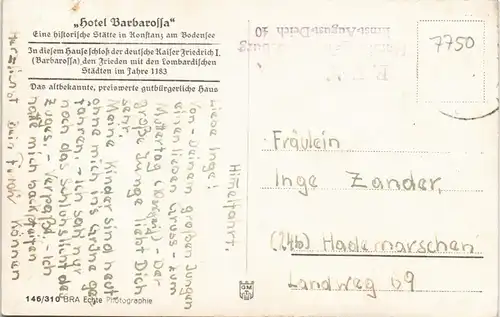 „Hotel Barbarossa“
Eine historische Stätte in Konstanz am Bodensee
In diesem Hause schloß der deutsche Kaiser Friedrich I.
(Barbarossa) den Frieden mit den Lombardischen
Städten im Jahre 1183
Das altbekannte, preiswerte gutbürgerliche Haus
Himelfahrt.
Liebe Inge!
Von Deinem großen Jungen
einen lieben Gruss - zum
Muttertag Der
große Junge liebt Dich
sehr.
Meine Kinder sind heut
ohne mich in's Grüne ge-
fahren. - Ich sah nur
noch das Schlusslicht des
Zuges. - Verpaßt - Ich
hätte mich
können
Herzlichst Dein
146/310 BRA Echte Photographie
GM
Ernst-August-Deich 40
7750
Fräulein
Inge Zander,
(24b) Hademarschen
Landweg 69